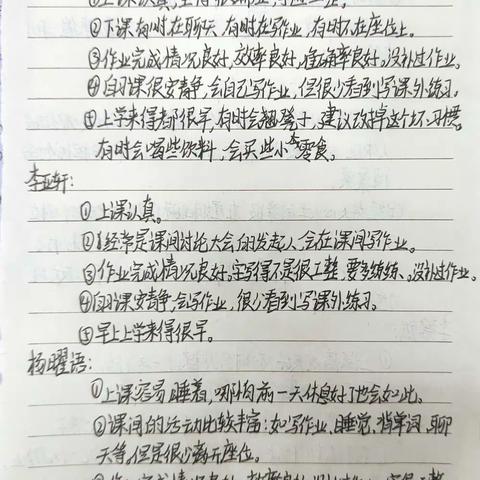 ②下课有时在聊天,有时在写作业,有时不在座位上。
③作业完成情况良好,效率良好,准确率良好。没补过作业。
④自习课很安静,会自己写作业,但很少看到写课外练习。
⑤上学来得都很早,有时会翘凳子,建议改掉这个坏习惯。
有时会喝些饮料,会买些小零食。
李亚轩:
①上课认真。
②经常是课间讨论大会的发起人,会在课间写作业。
③作业完成情况良好。字写得不是很工整,要多练练。没补过作业。
④自习课安静,会写作业,很少看到写课外练习。
⑤早上上学来得很早。
杨曜语:
①上课容易睡着,哪怕前一天休息好了也会如此。
②课间的活动比较丰富:如写作业、睡觉、背单词、聊
天等。但是很少离开座位。